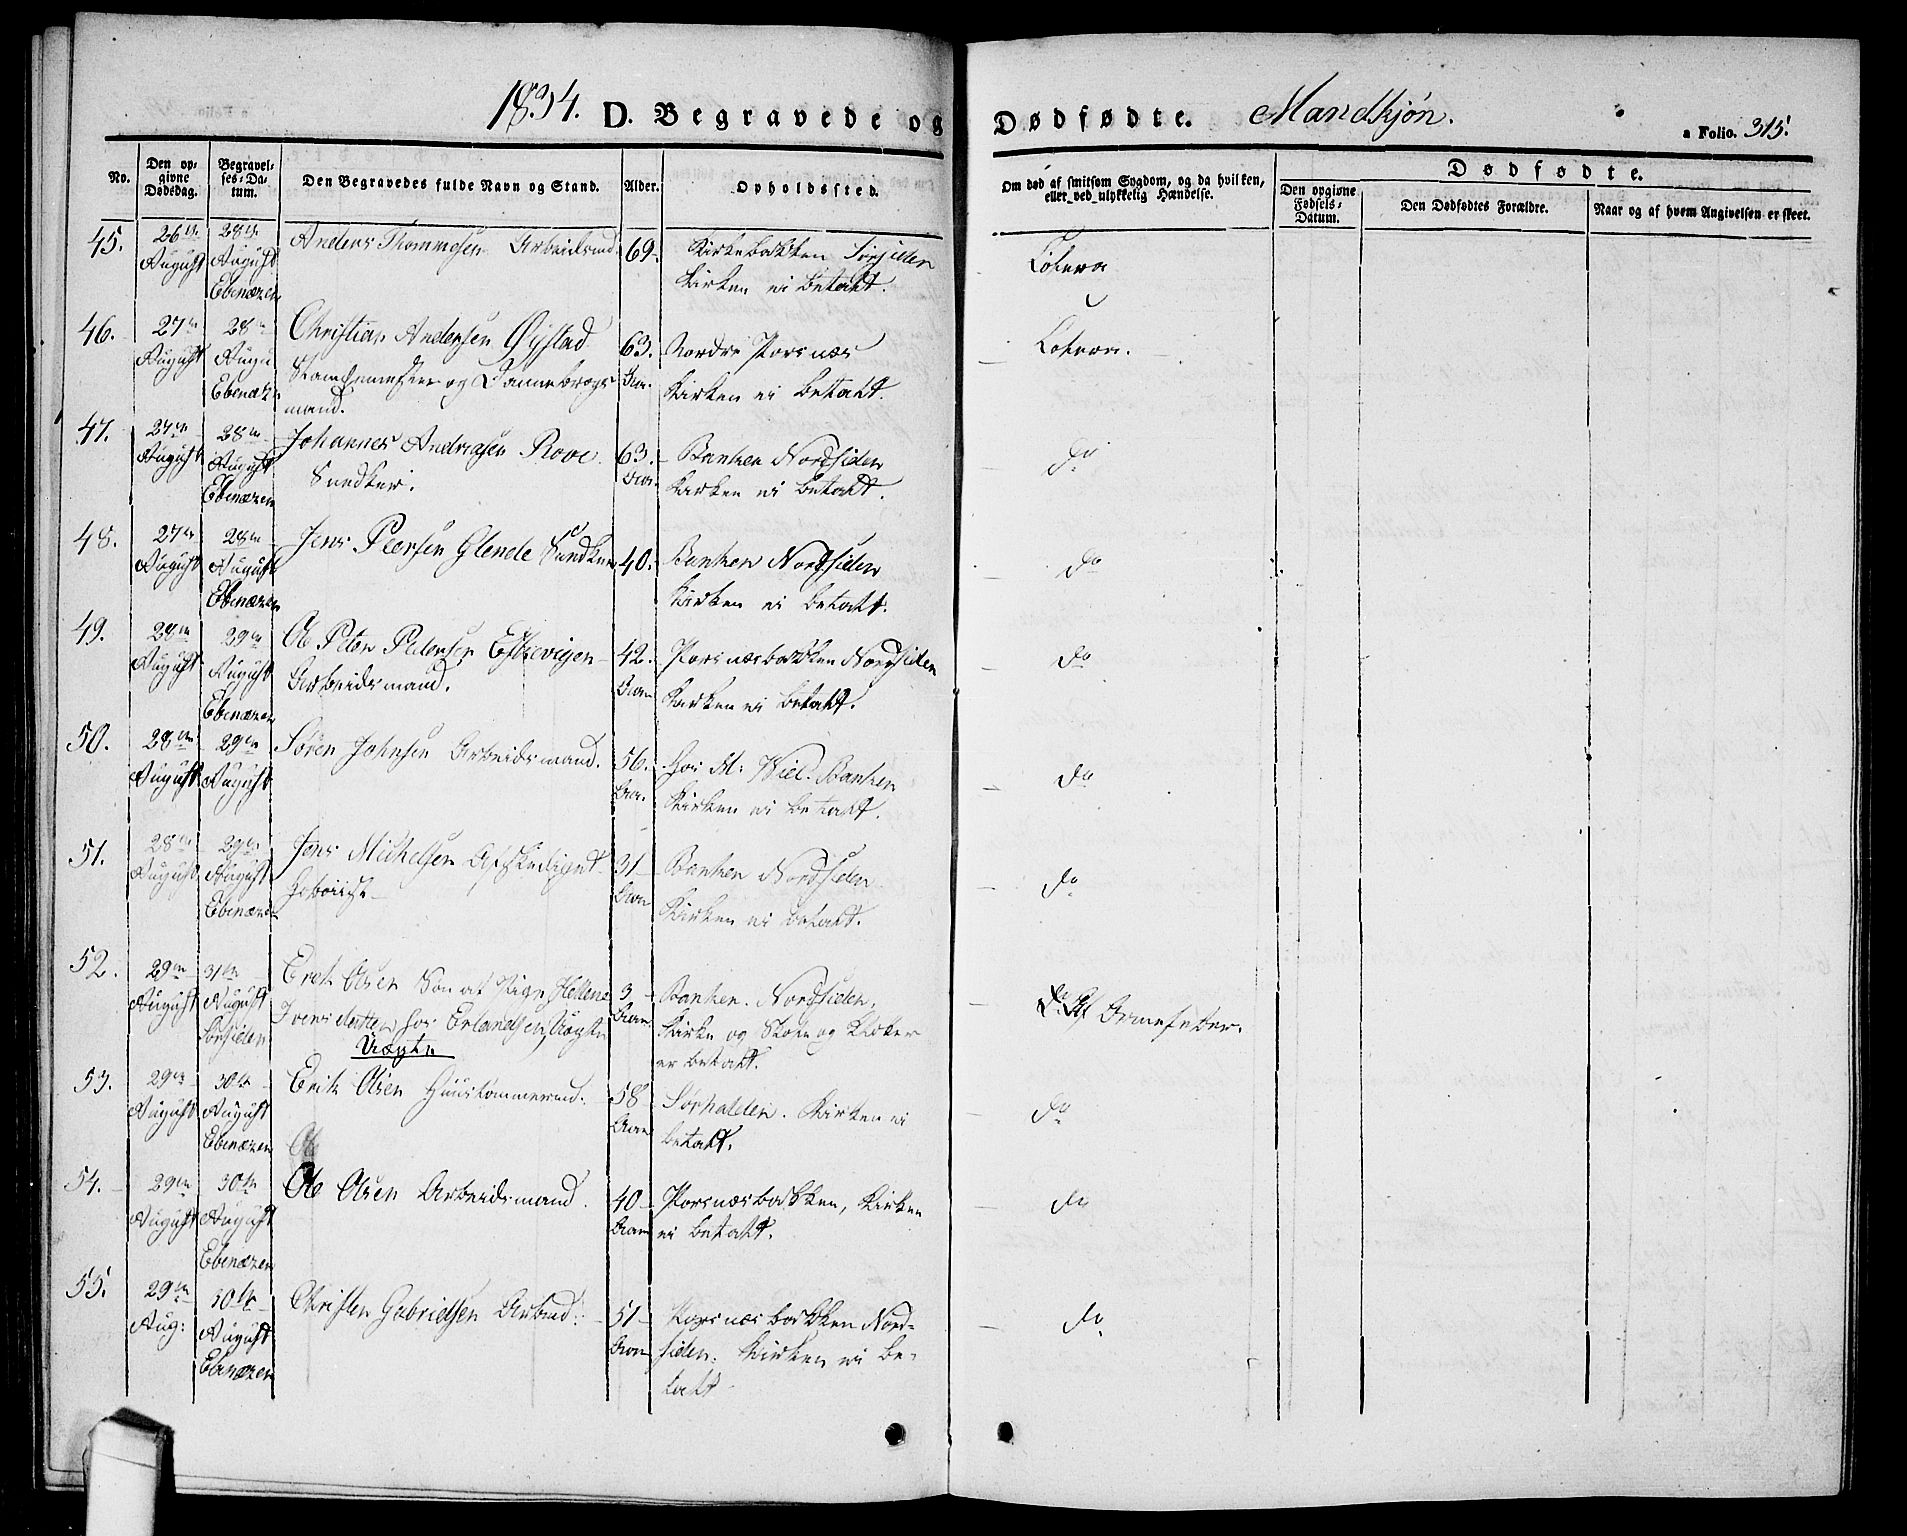 1834. D. Begravede og Dødfødte. Mandkjøn.
a Folio. 315.
No.
Den opgivne Dødsdag.
Begravelses-Datum.
Den Begravedes fulde Navn og Stand.
Alder.
Opholdssted.
Om død af smitsom Sygdom, og da hvilken, eller ved ulykkelig Hændelse.
Dødfødte.
Den opgivne Fødsels-Datum.
Den Dødfødtes Forældre.
Naar og af hvem Angivelsen er skeet.
45.
26de August
28de August Ebenæzer
Anders Thommesen Arbeidsmd
69
Kirkebakken Sørsiden
Kirken ei betalt.
Colera
46.
27de August
28de Augu Ebenæz
Christian Andersen Øystad
og Dannebrogs
mand.
63. Aar.
Nordre Torsnæs
Kirken ei betalt.
Colera.
47.
27de August
28de August Ebenæzer
Johannes Andreasen Rove
63. Aar.
Banken Nordsiden
Kirken ei betalt.
do
48.
27de August
28de August Ebenæzer
Jens Peersen Glende
40.
Banken Nordsiden
Kirken ei betalt.
do
49.
28de August
29de August Ebenæzer
Ole Peter Pedersen Eskevigen
Arbeidsmand.
42. Aar
Torsnæsbakken Nordsiden
Kirken ei betalt.
do
50.
28de August
29de August
Søren Johnsen Arbeidsmand.
56. Aar.
Hos M: Wiel. Banken
Kirken ei betalt.
do
51.
28de August
29de August Ebenæzer
Jens Michelsen Afskediget
Hoboist
31 Aar
Banken Nordsiden
Kirken ei betalt.
do
52.
29de August
31te August Sørsiden
Erek Olsen Søn af Pige Hellene
Iversdatter hos Erlandsen Vægter
Vægter
3 Aar
Banken. Nordsiden.
Kirke og Skole og Klokker
er betalt.
53.
29de August
30te August Ebenæzer
Erik Olsen Huustømmermd.
58 Aar
Sørhalden. Kirken ei
betalt.
do
Ole
54.
29de August
30te August Ebenæzer
Ole Olsen Arbeidsmand.
40 Aar
Torsnæsbakken, Kirken
ei betalt.
do
55.
29de Aug:
30te August Ebenæzer
Christen Gabrielsen Arbmd:
51 Aar
Torsnæsbakken Nord-
siden. Kirken ei be-
talt
do